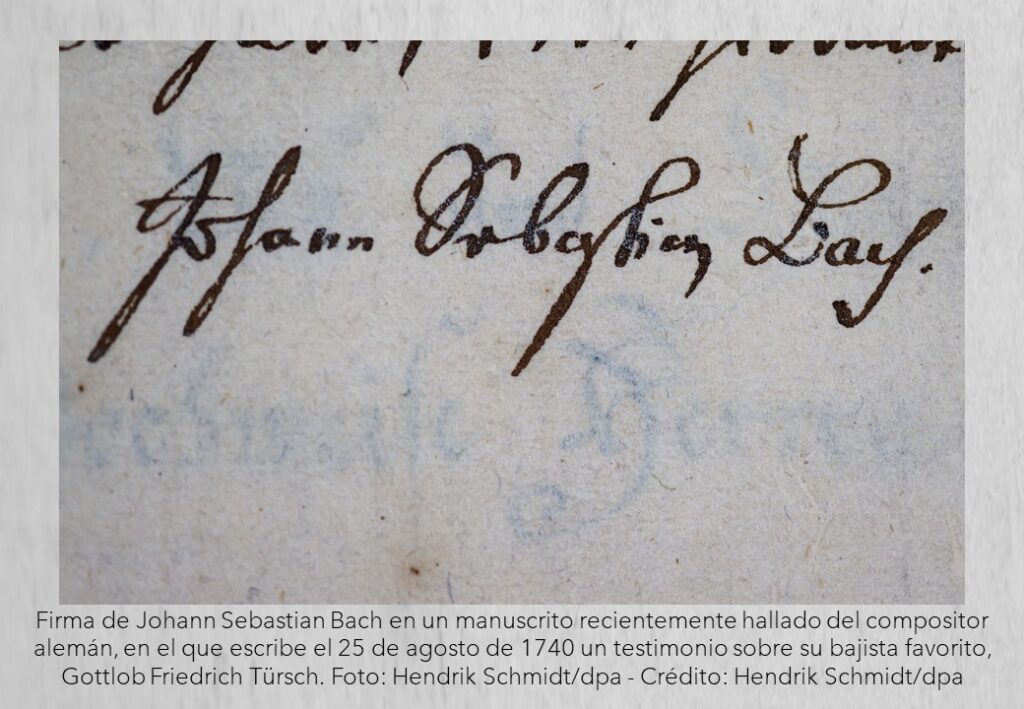 Johann Sebastian Bach.
Firma de Johann Sebastian Bach en un manuscrito recientemente hallado del compositor
alemán, en el que escribe el 25 de agosto de 1740 un testimonio sobre su bajista favorito,
Gottlob Friedrich Türsch. Foto: Hendrik Schmidt/dpa - Crédito: Hendrik Schmidt/dpa